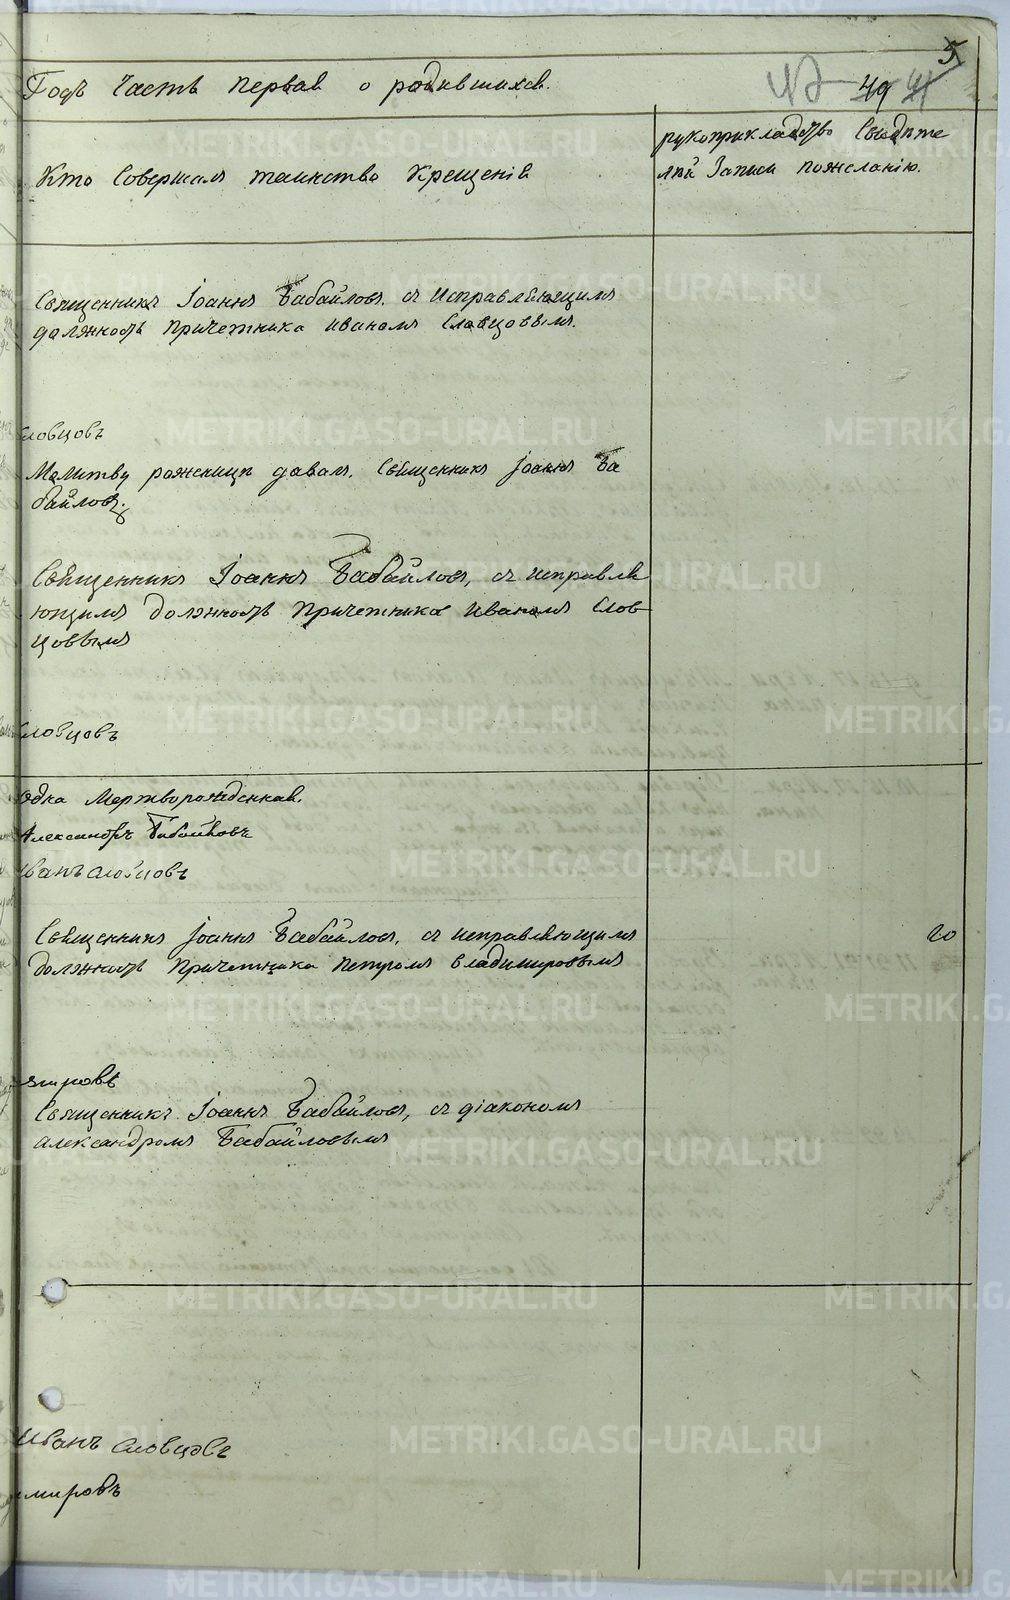 5
Годъ Часть Первая о родившихся.
49 41
Кто Совершалъ таинство Крещенія
рукоприкладство Свидѣте
лей Записи по желанію.
Священникъ Іоаннъ Бабайловъ, съ исправляющимъ
должность Причетника Иваномъ Словцовымъ.
Словцовъ
Молитву роженицѣ давалъ, Священникъ Іоаннъ Ба
байловъ.
Священникъ Іоаннъ Бабайловъ, съ исправля
ющимъ должность Причетника Иваномъ Слов
цовымъ
Словцовъ
Мертворожденная.
Александръ Бабайловъ
Иванъ Словцовъ
Священникъ Іоаннъ Бабайловъ, съ исправляющимъ
должность Причетника Петромъ Владимировымъ
20
Священникъ Іоаннъ Бабайловъ, съ діакономъ
Александромъ Бабайловымъ
Иванъ Словцовъ
мировъ
METRIKI.GASO-URAL.RU